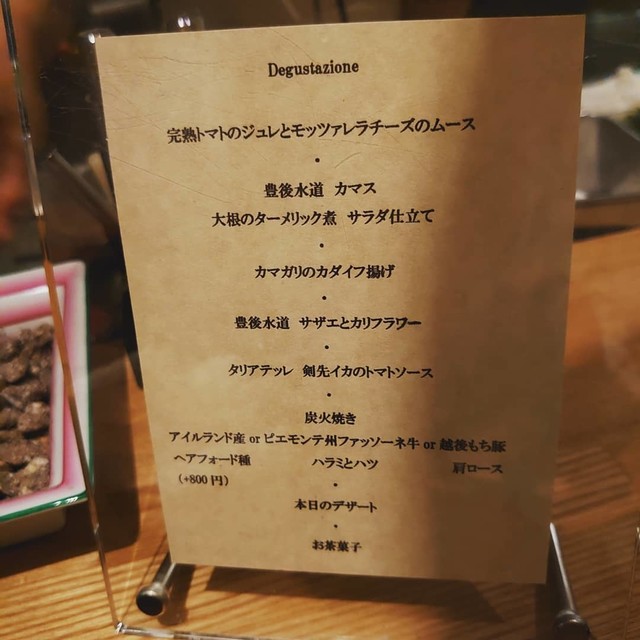 Degustazione
完熟トマトのジュレとモッツァレラチーズのムース
・
豊後水道 カマス
大根のターメリック煮 サラダ仕立て
・
カマガリのカダイフ揚げ
・
豊後水道 サザエとカリフラワー
・
タリアテッレ 剣先イカのトマトソース
・
炭火焼き
アイルランド産 or ピエモンテ州ファッソーネ牛 or 越後もち豚
ヘアフォード種 ハラミとハツ 肩ロース
(+800円)
・
本日のデザート
・
お茶菓子